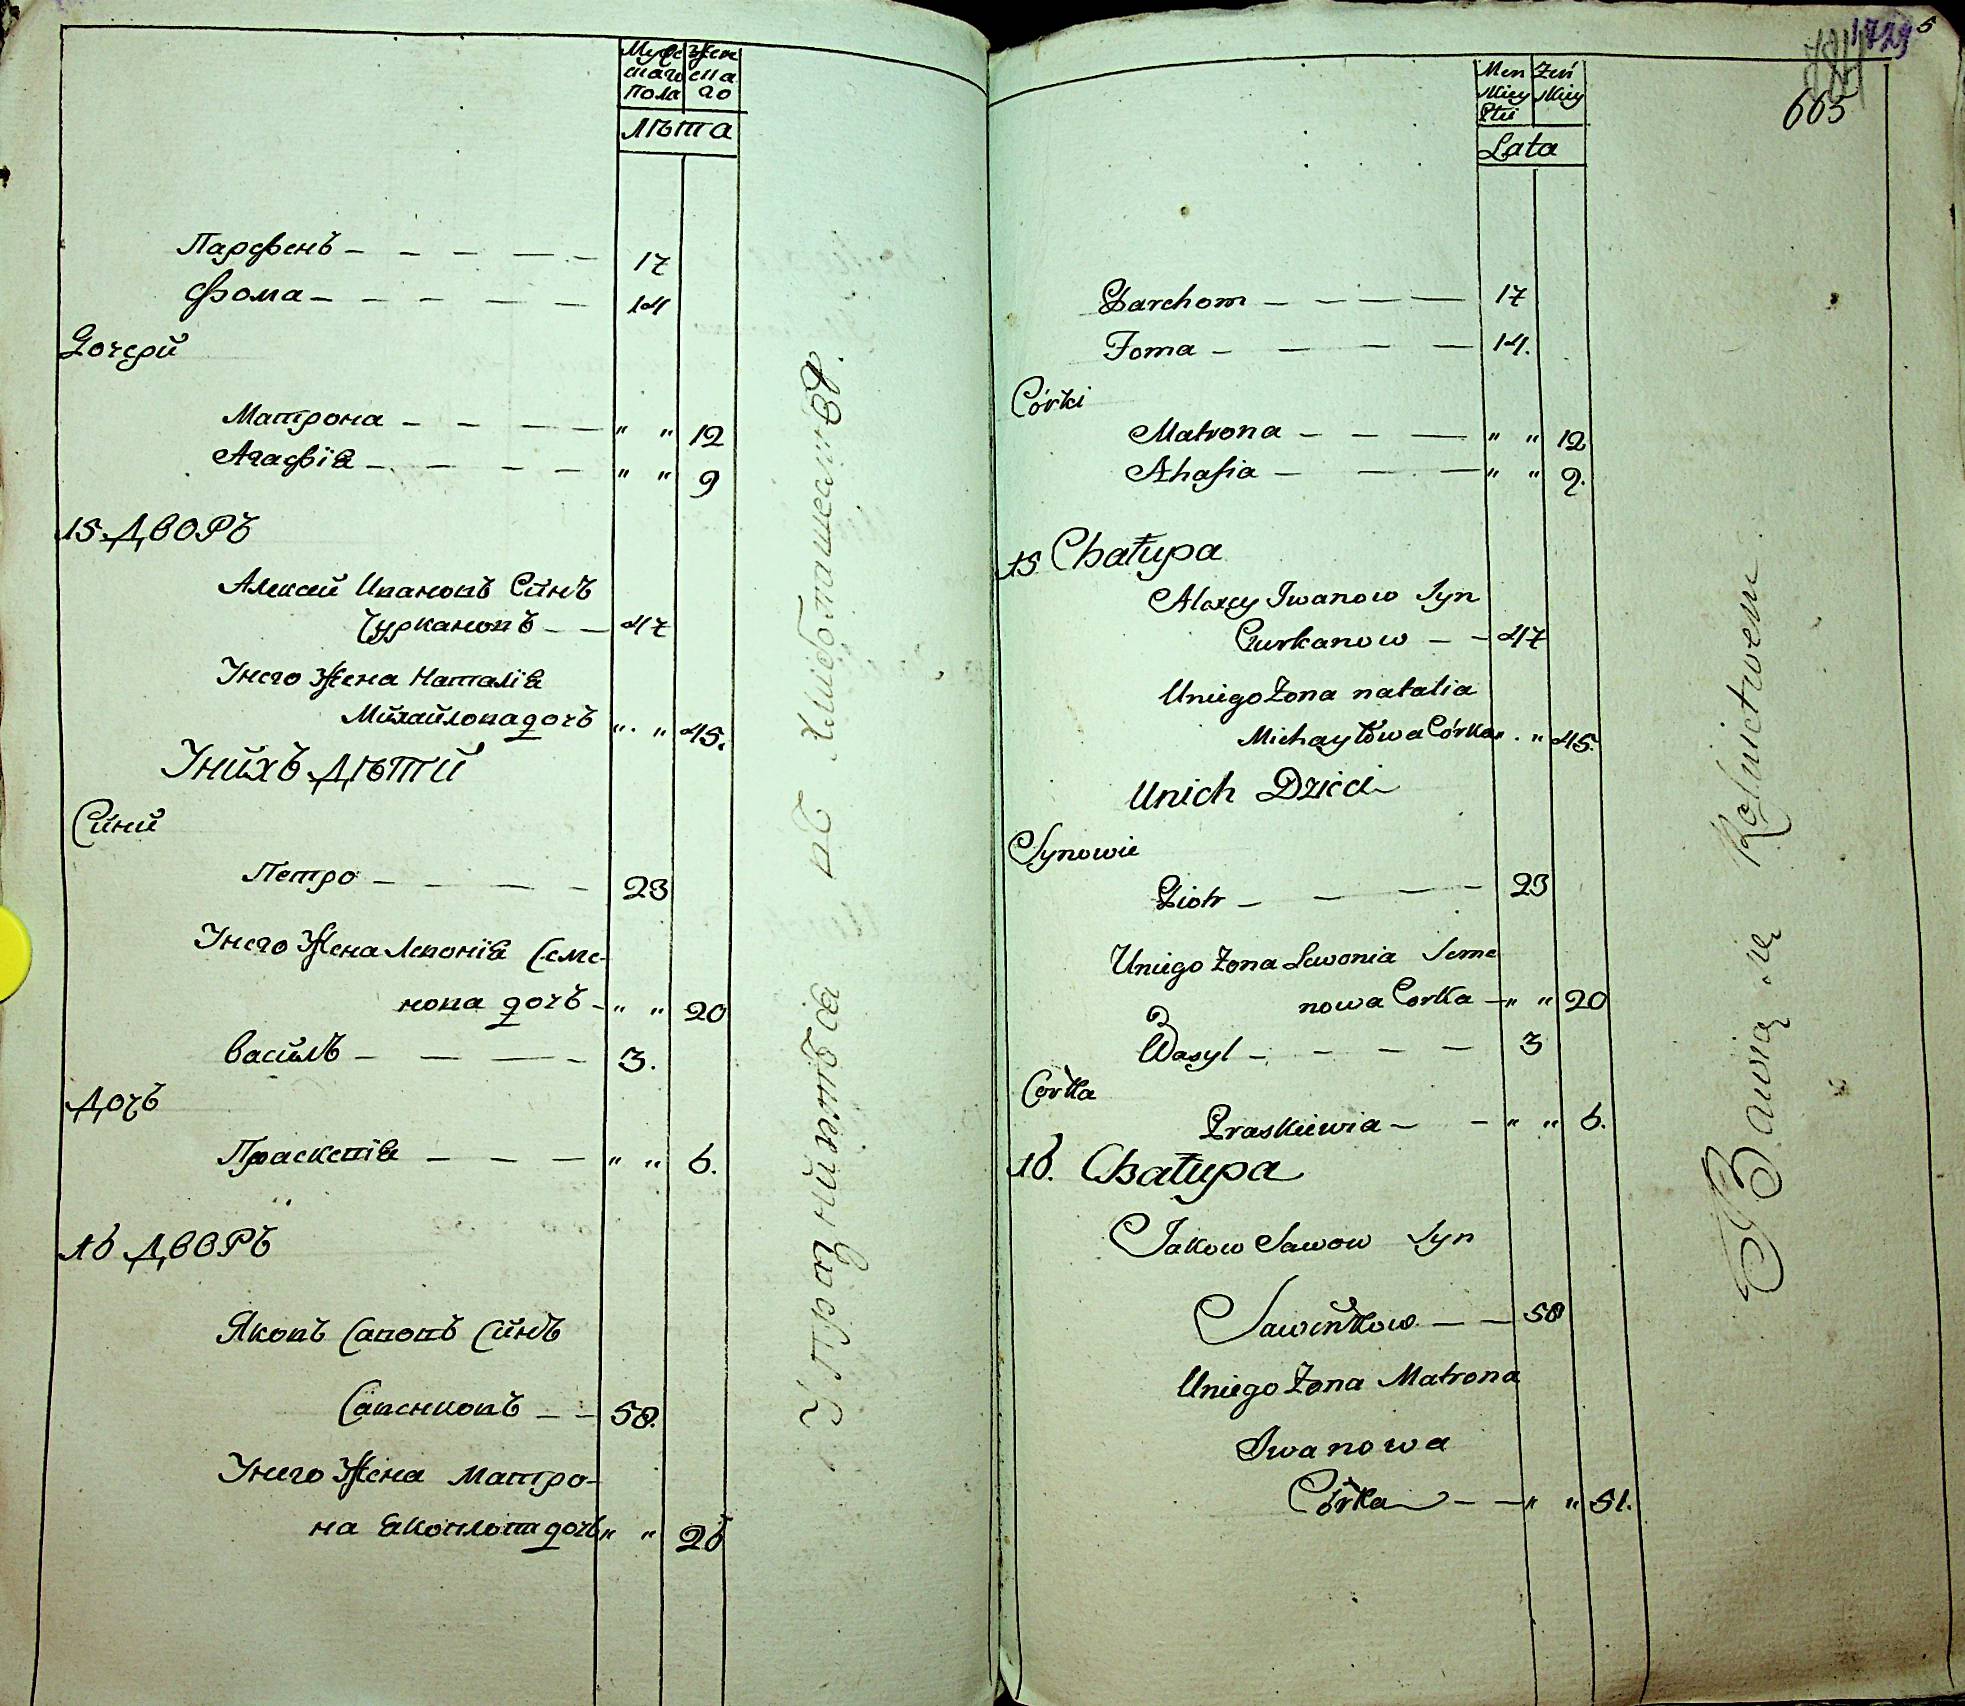 Муже Жен
скаго ска
Пола го
Лѣта
Парфенъ — — — — — 17
Фома — — — — — 14
Дочерй
Матрона — — — — " " 12
Агафія — — — — " " 9
15 ДВОРЪ
Алексй Ивановъ Сйнъ
Чуркановъ — — 47
Унего Жена Наталія
Мйхайлова дочъ " " 45.
Унйхъ Дѣтй
Сйнй
Петро — — — — 23
Унего Жена Левонія Семе-
нова дочъ — " " 20
Васйлъ — — — — 3.
Дочъ
Праскевія — — — " " 6.
16 ДВОРЪ
Яковъ Савовъ Сйнъ
Савенковъ — — 58.
Унего Жена Матро-
на Яковлова дочъ " " 26
Упражняйтъся въ Хлибопашествѣ.
1729 5
665
Men Żeń
skiey skiey
Płci
Lata
Parchom — — — — 17
Foma — — — — 14.
Córki
Matrona — — — " " 12
Ahafia — — — " " 9.
15 Chałupa
Alexey Iwanow Syn
Czurkanow — — 47
Uniego Żona natalia
Michayłowa Córka " " 45.
Unich Dzieci
Synowie
Piotr — — — — 23
Uniego Żona Lewonia Seme
nowa Corka — " " 20
Wasyl — — — — 3
Corka
Praskiewia — — " " 6.
16. Chałupa
Jakow Sawow Syn
Sawenkow — — 58
Uniego Żona Matrona
Iwanowa
Córka — — " " 51.
Bawią się Rolnictwem